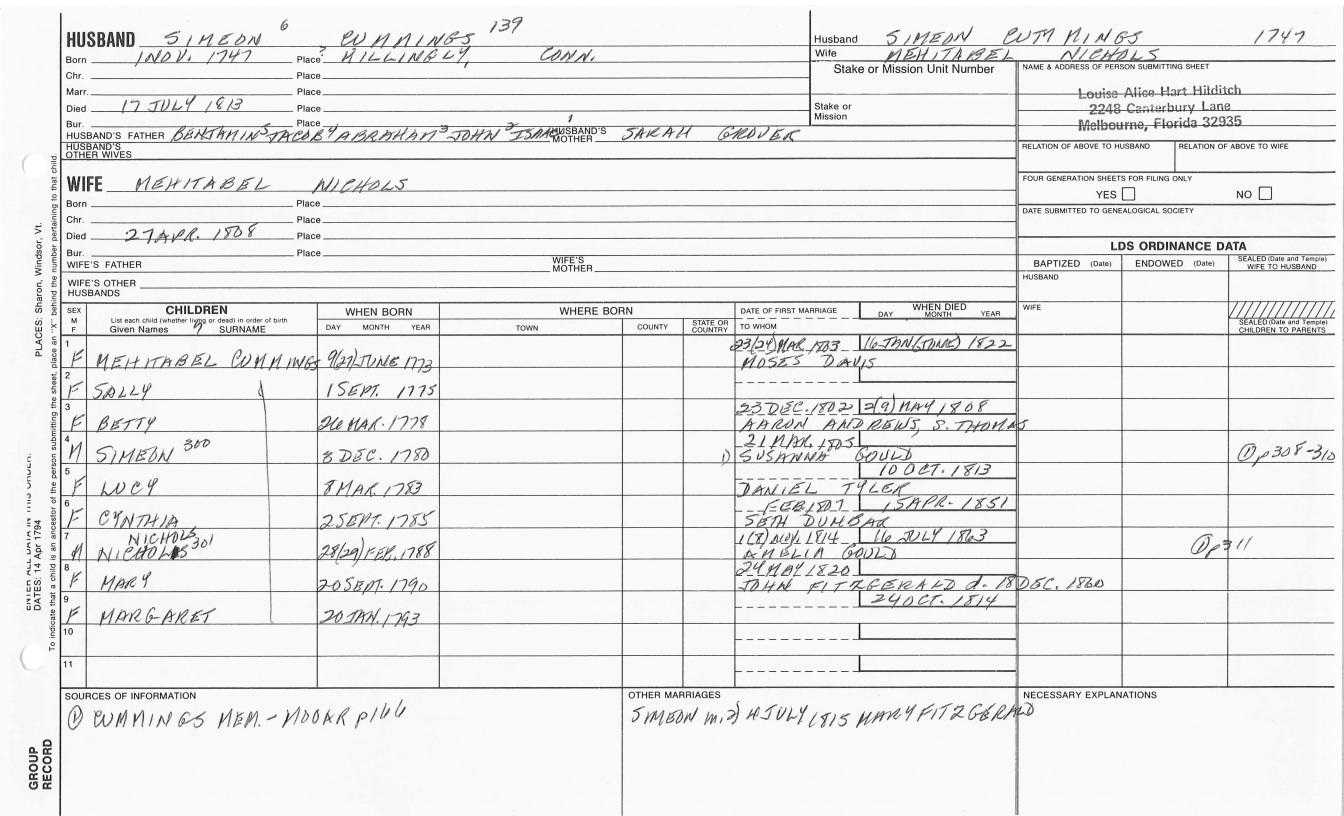 HUSBAND SIMEON 6 CUMMINGS 139
Born 1 NOV. 1747 Place ? KILLINGLY, CONN.
Chr. Place
Marr. Place
Died 17 JULY 1813 Place
Bur. Place
HUSBAND'S FATHER BENJAMIN 5 JACOB 4 ABRAHAM 3 JOHN 2 ISAAC 1 HUSBAND'S MOTHER SARAH GROVER
HUSBAND'S OTHER WIVES
Husband SIMEON CUMMINGS 1747
Wife MEHITABEL NICHOLS
Stake or Mission Unit Number
Stake or Mission
NAME & ADDRESS OF PERSON SUBMITTING SHEET
Louise Alice Hart Hilditch
2248 Canterbury Lane
Melbourne, Florida 32935
RELATION OF ABOVE TO HUSBAND RELATION OF ABOVE TO WIFE
FOUR GENERATION SHEETS FOR FILING ONLY
YES NO
DATE SUBMITTED TO GENEALOGICAL SOCIETY
WIFE MEHITABEL NICHOLS
Born Place
Chr. Place
Died 27 APR. 1808 Place
Bur. Place
WIFE'S FATHER WIFE'S MOTHER
WIFE'S OTHER HUSBANDS
LDS ORDINANCE DATA
BAPTIZED (Date) ENDOWED (Date) SEALED (Date and Temple) WIFE TO HUSBAND
HUSBAND
WIFE
SEALED (Date and Temple) CHILDREN TO PARENTS
SEX M F
CHILDREN
List each child (whether living or dead) in order of birth
Given Names 7 SURNAME
WHEN BORN
DAY MONTH YEAR
WHERE BORN
TOWN COUNTY STATE OR COUNTRY
DATE OF FIRST MARRIAGE
TO WHOM
WHEN DIED
DAY MONTH YEAR
1 F MEHITABEL CUMMINGS 9(27) JUNE 1773 23(24) MAR. 1803 16 JAN (JUNE) 1822
MOSES DAVIS
2 F SALLY 1 SEPT. 1775
3 F BETTY 26 MAR. 1778 23 DEC. 1802 2(9) MAY 1808
AARON ANDREWS, S. THOMAS
4 M SIMEON 300 8 DEC. 1780 21 MAR. 1805
1) SUSANNA GOULD ① p308-310
5 F LUCY 8 MAR. 1783 10 OCT. 1813
DANIEL TYLER
6 F CYNTHIA 2 SEPT. 1785 FEB 1807 15 APR. 1851
SETH DUMBAR
7 M NICHOLS NICHOLAS 301 28(29) FEB. 1788 1(8) 1814 16 JULY 1863
AMELIA GOULD ① p311
8 F MARY 20 SEPT. 1790 24 MAY 1820
JOHN FITZGERALD d. 18 DEC. 1860
9 F MARGARET 20 JAN. 1793 24 OCT. 1814
10
11
SOURCES OF INFORMATION
① CUMMINGS MEM. - MOOAR p166
OTHER MARRIAGES
SIMEON m. 2) 4 JULY 1815 MARY FITZGERALD
NECESSARY EXPLANATIONS
PLACES: Sharon, Windsor, Vt.
ENTER ALL DATA IN THIS ORDER:
DATES: 14 Apr 1794
To indicate that a child is an ancestor of the person submitting the sheet, place an "X" behind the number pertaining to that child.
GROUP RECORD